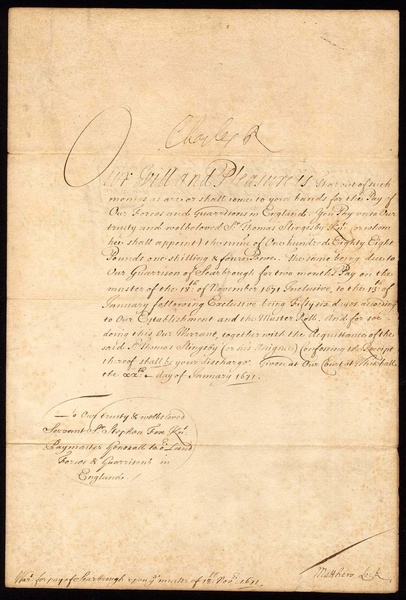 Charles R
Our Will and Pleasure is, that out of such
monies as are or shall come to your hands for the Pay of
Our Forces and Guarrisons in England: You Pay unto Our
trusty and welbeloved Sr. Thomas Slingesby Knt. (or whom
hee shall appoint) the summe of One hundred Eighty Eight
Pounds one shilling & foure Pence. The same being due to
Our Guarrison of Scarbrough for two months Pay on the
muster of the 18th. of November 1671 Inclusive, to the 13th of
January following Exclusive being Fifty six dayes according
to Our Establishment and the Muster Roll. And for soe
doing this Our Warrant, together with the Acquittance of the
said Sr. Thomas Slingsby (or his Assignes) confessing the Receipt
thereof shall be your discharge. Given at Our Court at Whitehall
the xxth. day of January 1671.
To Our trusty & welbeloved
Servant Sr. Stephen Fox Knt.
Paymaster Generall to Our Land
Forces & Guarrisons in
England.
Warr. for pay of Scarbrough upon ye muster of 18th. Novr. 1671.
Matthew Lock